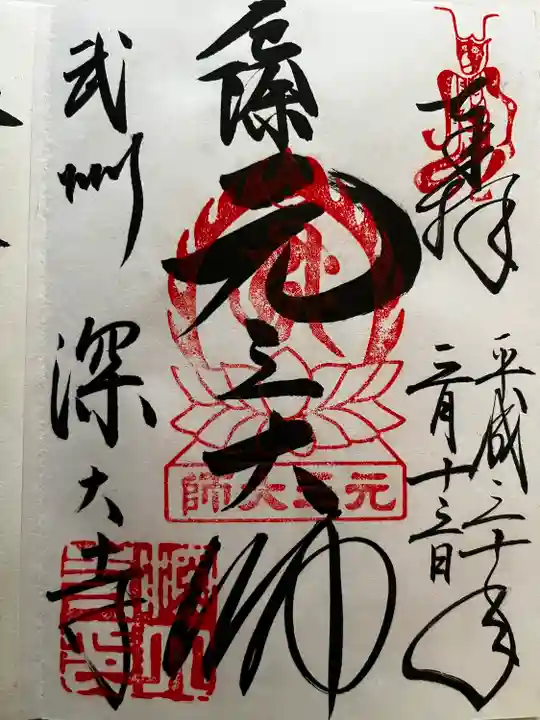 奉拝
平成三十年
三月十三日
厄除元三大師
元三大師
武州 深大寺